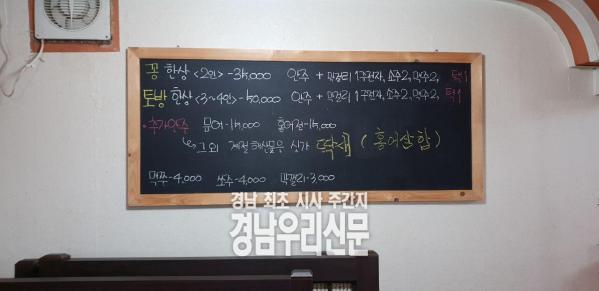 꽁 한상 <2인> -35,000 안주 + 막걸리 1주전자, 소주2, 맥주2, 택1
토방 한상 <3~4인> -50,000 안주 + 막걸리 1주전자, 소주2, 맥주2, 택1
• 추가안주 문어-15,000 홍어전-15,000
그외 계절 해산물은 싯가 딱새 ( 홍어삼합 )
맥주-4,000 쏘주-4,000 막걸리-3,000
경남 최초 시사 주간지
경남우리신문